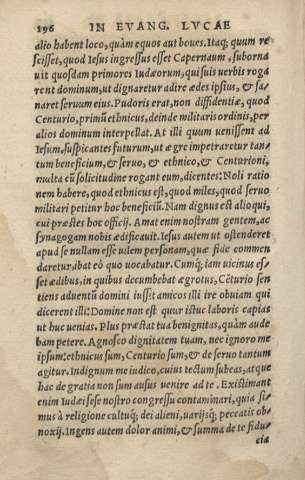 196 IN EVANG. LVCAE
alio habent loco, quàm equos aut boues. Itaq; quum re
scisset, quod Iesus ingressus esset Capernaum, suborna
uit quosdam primores Iudæorum, qui suis uerbis roga
rent dominum, ut dignaretur adire ædes ipsius, & sa-
naret seruum eius. Pudoris erat, non diffidentiæ, quod
Centurio, primũ ethnicus, deinde militaris ordinis, per
alios dominum interpellat. At illi quum uenissent ad
Iesum, suspicantes futurum, ut ægre impetraretur tan-
tum beneficium, & seruo, & ethnico, & Centurioni,
multa cũ solicitudine rogant eum, dicentes: Noli ratio
nem habere, quod ethnicus est, quod miles, quod seruo
militari petitur hoc beneficiũ. Nam dignus est alioqui,
cui præstes hoc officij. Amat enim nostram gentem, ac
synagogam nobis ædificauit. Iesus autem ut ostenderet
apud se nullam esse uilem personam, quæ fide commen
daretur, ibat eò quo uocabatur. Cumq; iam uicinus es-
set ædibus, in quibus decumbebat ægrotus, Cẽturio sen
tiens aduentũ domini iussit amicos illi ire obuiam qui
dicerent illi: Domine non est quur istuc laboris capias
ut huc uenias. Plus præstat tua benignitas, quàm aude
bam petere. Agnosco dignitatem tuam, nec ignoro me
ipsum: ethnicus sum, Centurio sum, & de seruo tantum
agitur. Indignum me iudico, cuius tectum subeas, atque
hac de gratia non sum ausus uenire ad te. Existimant
enim Iudæi sese nostro congressu contaminari, quia si-
mus à religione cultuq; dei alieni, uarijsq; peccatis ob-
noxij. Ingens autem dolor animi, & summa de te fidu-
cia